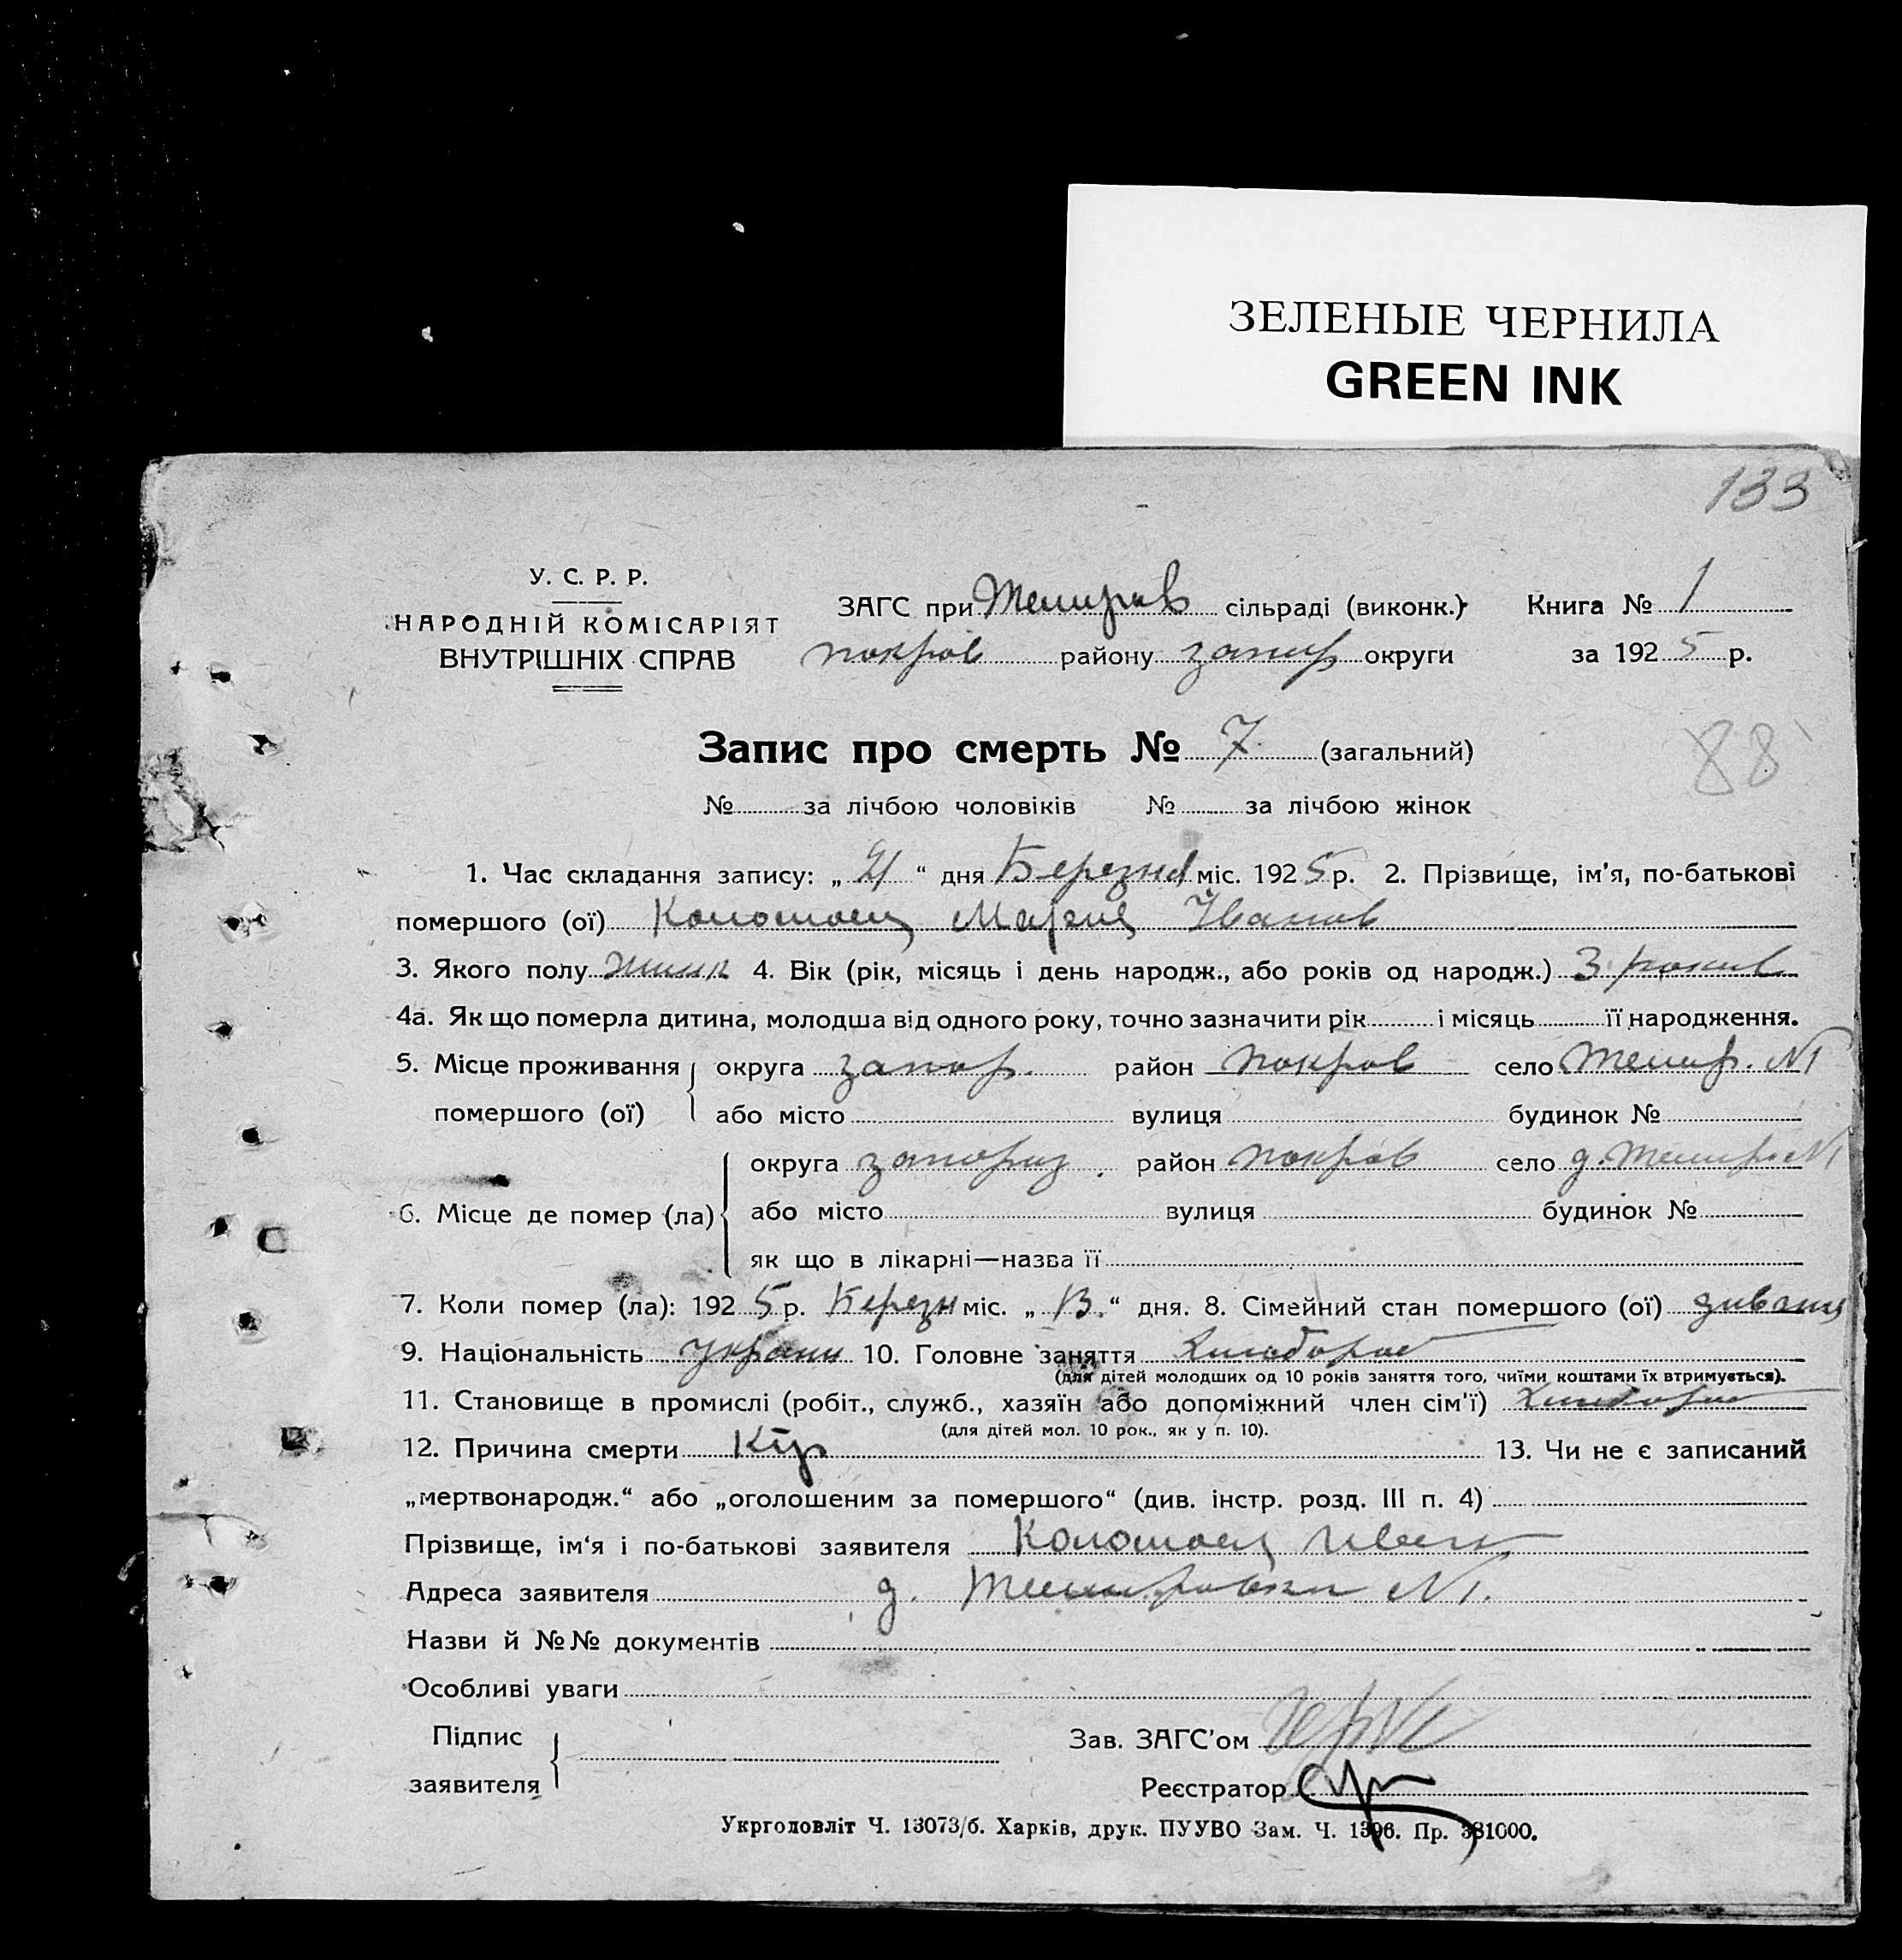 ЗЕЛЕНЫЕ ЧЕРНИЛА
GREEN INK
133
У. С. Р. Р.
НАРОДНІЙ КОМІСАРІЯТ
ВНУТРІШНІХ СПРАВ
ЗАГС при Темиров сільраді (виконк.) Книга № 1
покров району запор округи за 1925 р.
Запис про смерть № 7 (загальний)
88
№ за лічбою чоловіків № за лічбою жінок
1. Час складання запису: „21“ дня Березня міс. 1925 р. 2. Прізвище, ім'я, по-батькові
помершого (ої) Коломоец Мария Иванов
3. Якого полу 4. Вік (рік, місяць і день народж., або років од народж.) 3 роки
4а. Як що померла дитина, молодша від одного року, точно зазначити рік і місяць її народження.
5. Місце проживання округа запор. район покров село Темир. №1
помершого (ої) або місто вулиця будинок №
округа запориз. район покров село д. Темиров №1
6. Місце де помер (ла) або місто вулиця будинок №
як що в лікарні—назва її
7. Коли помер (ла): 1925 р. Березн міс. „13.“ дня. 8. Сімейний стан помершого (ої)
9. Національність украин 10. Головне заняття Хлибороб
(для дітей молодших од 10 років заняття того, чиїми коштами їх втримується).
11. Становище в промислі (робіт., служб., хазяїн або допоміжний член сім'ї) Хлибороб
(для дітей мол. 10 рок., як у п. 10).
12. Причина смерти Кір 13. Чи не є записаний
„мертвонародж.“ або „оголошеним за помершого“ (див. інстр. розд. III п. 4)
Прізвище, ім'я і по-батькові заявителя Коломоец Иван
Адреса заявителя д. Темировка №1.
Назви й №№ документів
Особливі уваги
Підпис
заявителя
Зав. ЗАГС'ом
Реєстратор
Укрголовліт Ч. 13073/б. Харків, друк. ПУУВО Зам. Ч. 1396. Пр. 381000.